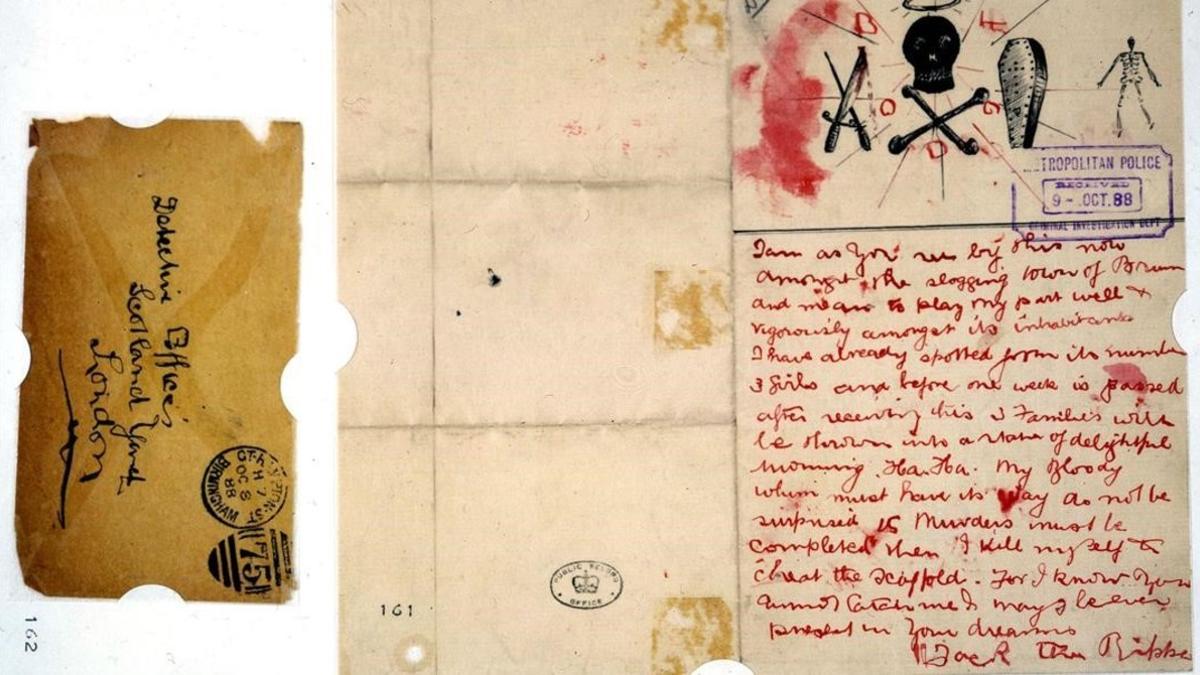 Detective Offices
Scotland Yard
London
BIRMINGHAM
H 7
OC 8
88
75
162
161
PUBLIC RECORD
OFFICE
B
H
O
G
D
TROPOLITAN POLICE
RECEIVED
9-.OCT.88
CRIMINAL INVESTIGATION DEPT
I am as you see by this now
amongst the slogging town of Brum
and mean to play my part well &
vigorously amongst its inhabitants
I have already spotted from its numbe
3 Girls and before one week is passed
after receiving this 3 Families will
be thrown into a state of delightful
mourning. Ha. Ha. My Bloody
whim must have its way do not be
surprised 15 Murders must be
completed then I kill myself to
cheat the scaffold. For I know you
cannot catch me & may I be ever
present in your dreams
Jack the Rippe